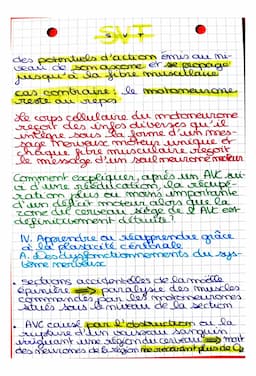 SVT
des potentiels d'action émis au ni-
veau de son axone et se propage
jusqu'à la fibre musculaire
cas contraire : le motoneurone
reste au repos
→ le corps cellulaire du motoneurone
reçoit des infos diverses qu'il
intègre sous la forme d'un mes-
sage nerveux moteur unique et
chaque fibre musculaire reçoit
le message d'un seul neurone moteur
Comment expliquer, après un AVC sui-
vi d'une rééducation, la récupé-
ration plus ou moins importante
d'un déficit moteur alors que la
zone du cerveau siège de l'AVC est
définitivement détruite ?
IV. Apprendre ou réapprendre grâce
à la plasticité cérébrale
A. Les dysfonctionnements du sys-
tème nerveux
• sections accidentelles de la moelle
épinière ⇒ paralysie des muscles
commandés par les motoneurones
situés sous le niveau de la section
• AVC causé par l'obstruction ou la
rupture d'un vaisseau sanguin
irriguant une région du cerveau ⇒ mort
des neurones de la région ne recevant plus de O₂